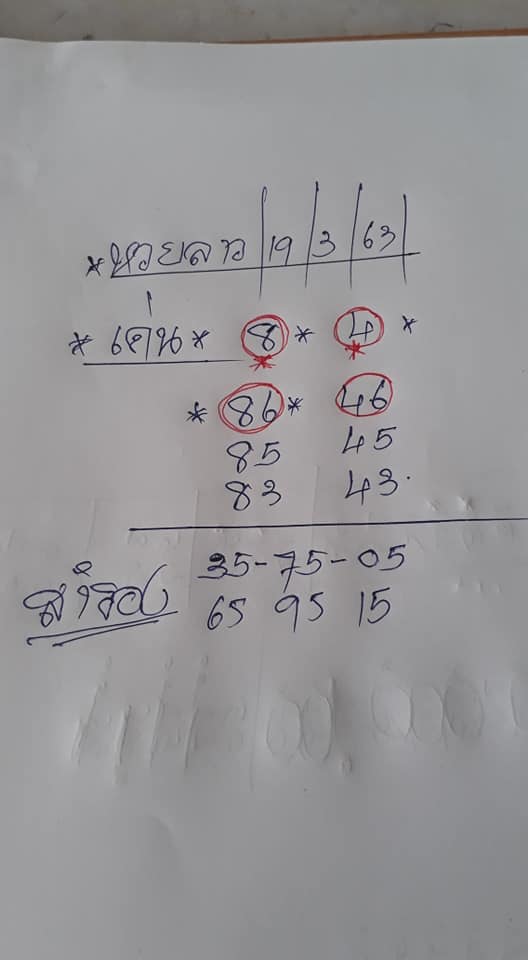 *หวยลาว|19|3|63|
* เด่น * 8 * 4 *
* 86 * 46
85 45
83 43.
35-75-05
สำรอง 65 95 15